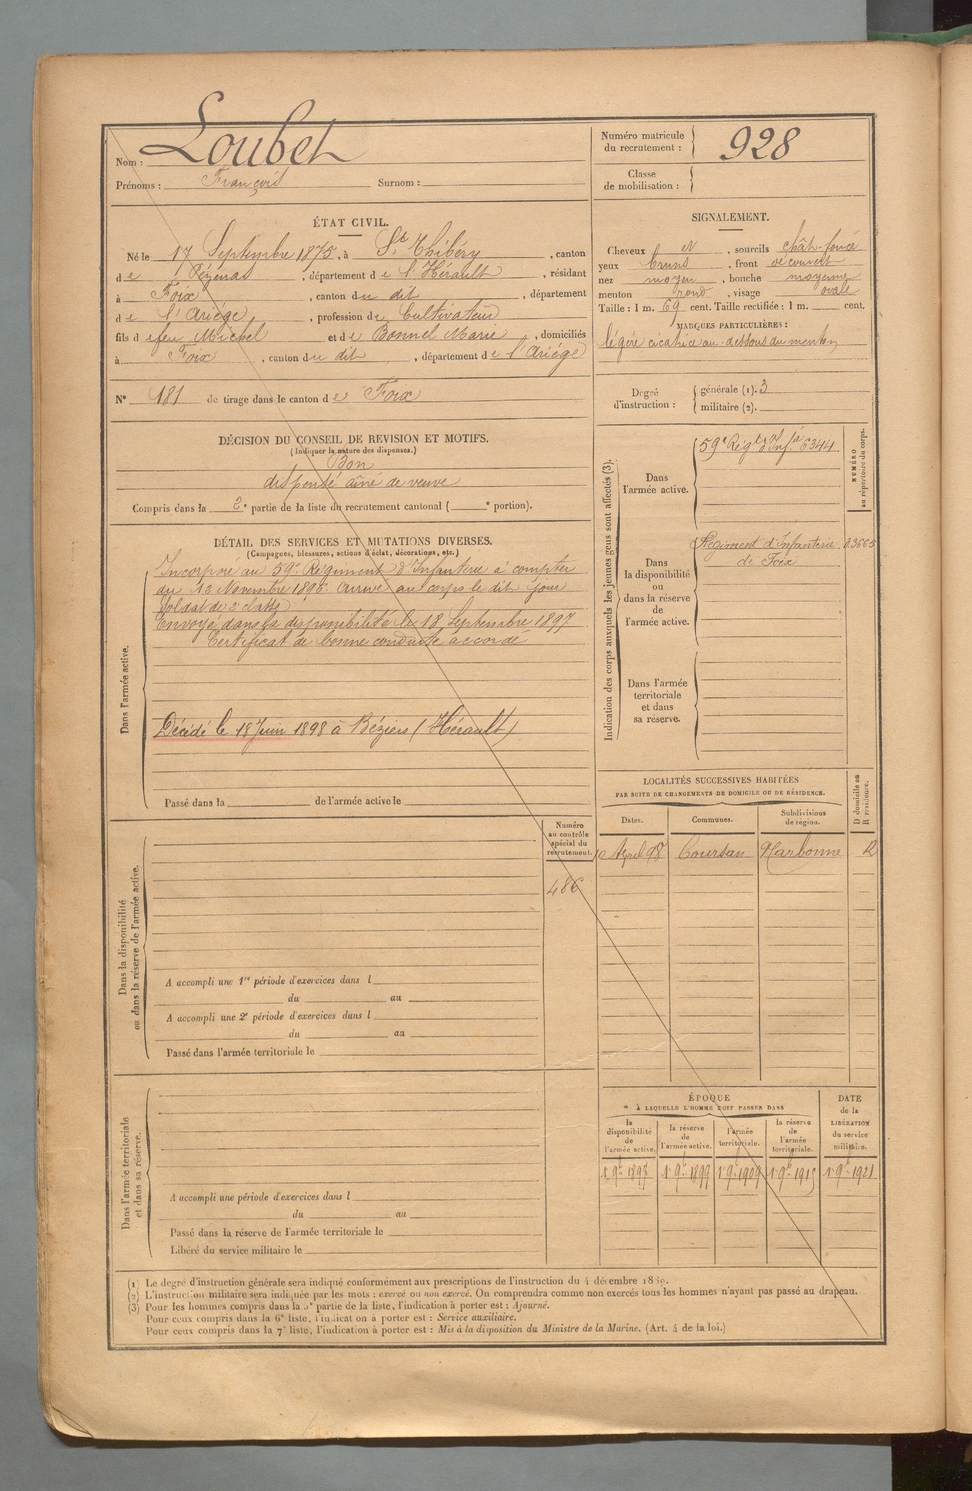 Nom : Loubet
Prénoms : François Surnom :
Numéro matricule
du recrutement : 928
Classe
de mobilisation :
ÉTAT CIVIL.
Né le 17 Septembre 1875, à St Thibéry, canton
de Pézenas, département de l'Hérault, résidant
à Foix, canton du dit, département
de l'Ariége, profession de Cultivateur
fils de feu Michel et de Bonnel Marie, domiciliés
à Foix, canton du dit, département de l'Ariége
N° 181 de tirage dans le canton de Foix
SIGNALEMENT.
Cheveux et, sourcils chât-foncé
yeux bruns, front découvert
nez moyen, bouche moyenne
menton rond, visage ovale
Taille : 1 m. 69 cent. Taille rectifiée : 1 m. cent.
MARQUES PARTICULIÈRES :
légère cicatrice au-dessous du menton
Degré
d'instruction :
générale (1). 3
militaire (2).
DÉCISION DU CONSEIL DE REVISION ET MOTIFS.
(Indiquer la nature des dispenses.)
Bon
dispensé aîné de veuve
Compris dans la 2e partie de la liste du recrutement cantonal ( e portion).
DÉTAIL DES SERVICES ET MUTATIONS DIVERSES.
(Campagnes, blessures, actions d'éclat, décorations, etc.)
Dans l'armée active.
Incorporé au 59e Régiment d'Infanterie à compter
du 12 Novembre 1896. Arrivé au corps le dit jour
Soldat de 2e classe
Envoyé dans la disponibilité le 18 Septembre 1897
Certificat de bonne conduite accordé
Décédé le 18 Juin 1898 à Béziers (Hérault)
Passé dans la de l'armée active le
Indication des corps auxquels les jeunes gens sont affectés (3).
NUMÉRO
au répertoire du corps.
Dans
l'armée active.
59e Régt d'Infie 6344
Dans
la disponibilité
ou
dans la réserve
de
l'armée active.
Régiment d'Infanterie 03665
de Foix
Dans l'armée
territoriale
et dans
sa réserve.
LOCALITÉS SUCCESSIVES HABITÉES
PAR SUITE DE CHANGEMENTS DE DOMICILE OU DE RÉSIDENCE.
D domicile ou
R résidence.
Dates. Communes. Subdivisions
de région.
Avril 98 Coursan Narbonne D
Numéro
au contrôle
spécial du
recrutement.
486
Dans la disponibilité
ou dans la réserve de l'armée active.
A accompli une 1re période d'exercices dans l
du au
A accompli une 2e période d'exercices dans l
du au
Passé dans l'armée territoriale le
Dans l'armée territoriale
et dans sa réserve.
A accompli une période d'exercices dans l
du au
Passé dans la réserve de l'armée territoriale le
Libéré du service militaire le
ÉPOQUE
À LAQUELLE L'HOMME DOIT PASSER DANS
DATE
de la
LIBÉRATION
du service
militaire.
la
disponibilité
de
l'armée active.
la réserve
de
l'armée active.
l'armée
territoriale.
la réserve
de
l'armée
territoriale.
1 9bre 1897 1 9bre 1899 1 9bre 1909 1 9bre 1915 1 9bre 1921
(1) Le degré d'instruction générale sera indiqué conformément aux prescriptions de l'instruction du 4 décembre 1889.
(2) L'instruction militaire sera indiquée par les mots : exercé ou non exercé. On comprendra comme non exercés tous les hommes n'ayant pas passé au drapeau.
(3) Pour les hommes compris dans la 5e partie de la liste, l'indication à porter est : Ajourné.
Pour ceux compris dans la 6e liste, l'indication à porter est : Service auxiliaire.
Pour ceux compris dans la 7e liste, l'indication à porter est : Mis à la disposition du Ministre de la Marine. (Art. 4 de la loi.)